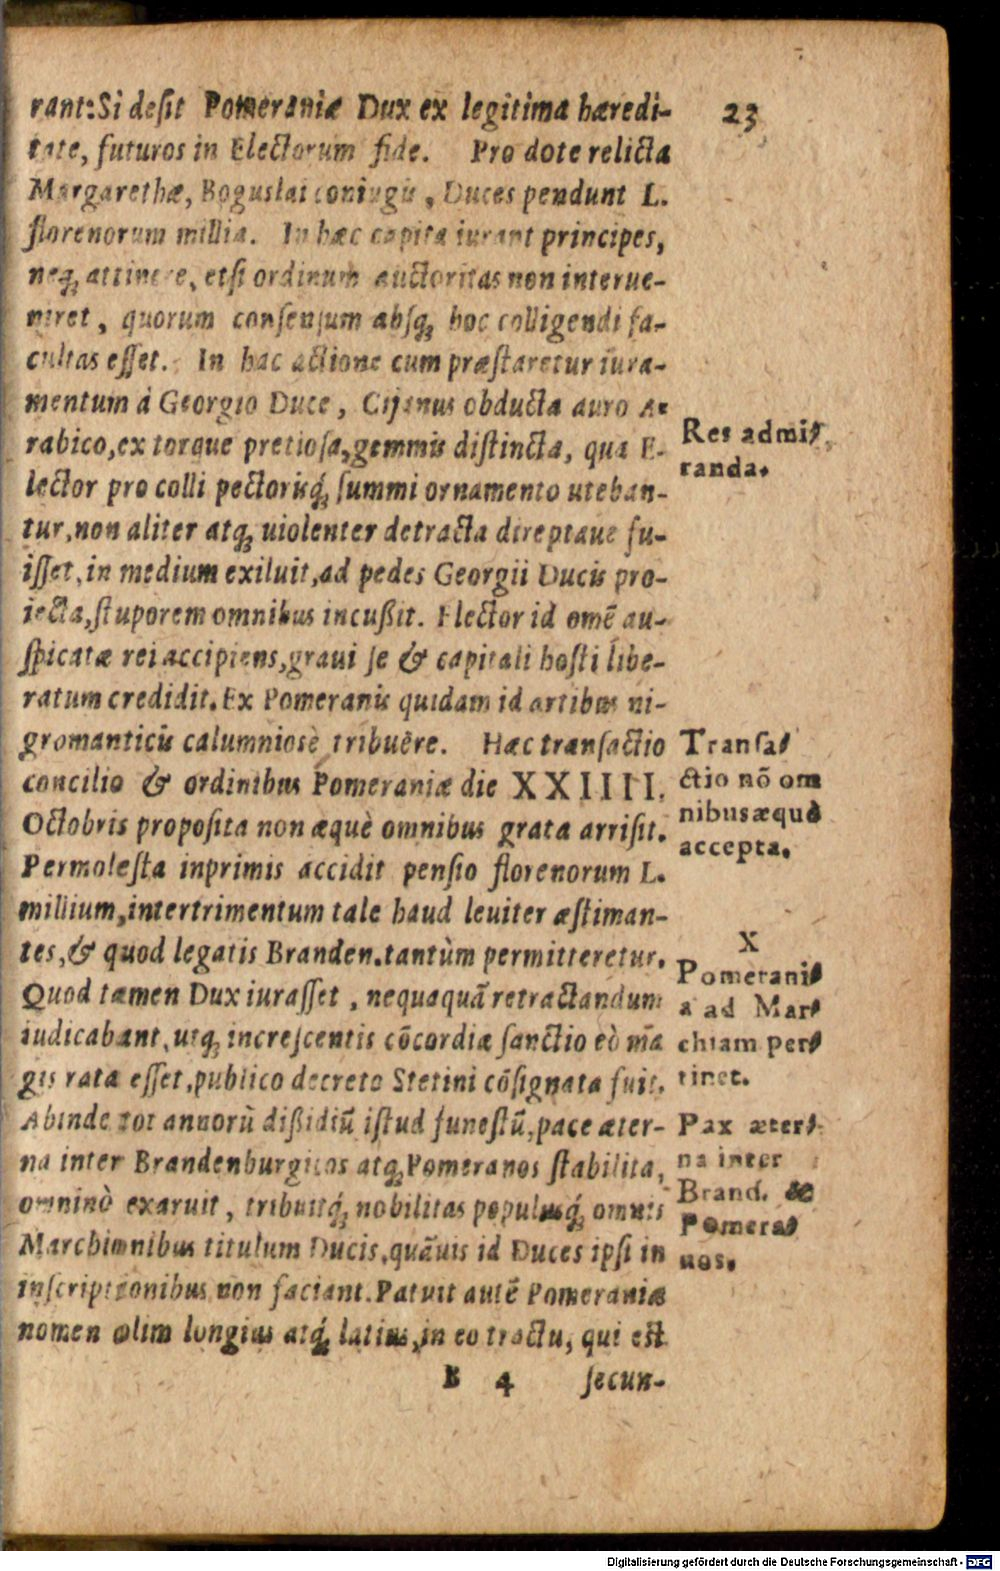 23
rant: Si desit Pomeraniæ Dux ex legitima hæredi-
tate, futuros in Electorum fide. Pro dote relicta
Margarethæ, Boguslai coniugis, Duces pendunt L.
florenorum millia. In hæc capita iurant principes,
neq́; attinere, etsi ordinum auctoritas non interue-
niret, quorum consensum absq́; hoc colligendi fa-
cultas esset. In hac actione cum præstaretur iura-
mentum à Georgio Duce, obducta auro A-
rabico, ex torque pretiosa, gemmis distincta, qua E-
lector pro colli pectorisq́; summi ornamento uteban-
tur, non aliter atq́; uiolenter detracta direptaue fu-
isset, in medium exiluit, ad pedes Georgii Ducis pro-
iecta, stuporem omnibus incußit. Elector id omē au-
spicatæ rei accipiens, graui se & capitali hosti libe-
ratum credidit. Ex Pomeranis quidam id artibus ni-
gromanticis calumniosè tribuēre. Hæc transactio
concilio & ordinibus Pomeraniæ die XXIIII.
Octobris proposita non æquè omnibus grata arrisit.
Permolesta inprimis accidit pensio florenorum L.
millium, intertrimentum tale haud leuiter æstiman-
tes, & quod legatis Branden. tantùm permitteretur.
Quod tamen Dux iurasset, nequaquā retractandum
iudicabant, utq́; increscentis cōcordiæ sanctio eò mā
gis rata esset, publico decreto Stetini cōsignata fuit.
Abinde tot annorū dißidiū istud funestū, pace æter-
na inter Brandenburgicos atq́; Pomeranos stabilita,
omninò exaruit, tribuitq́; nobilitas populusq́; omnis
Marchionibus titulum Ducis, quāuis id Duces ipsi in
inscriptionibus non faciant. Patuit autē Pomeraniæ
nomen olim longius atq́; latius, in eo tractu, qui est
B 4 secun-
Res admi-
randa.
Transa-
ctio nō om
nibus æquè
accepta.
X
Pomerani-
a ad Mar-
chiam per-
tinet.
Pax æter-
na inter
Brand. &
Pomera-
nos.
Digitalisierung gefördert durch die Deutsche Forschungsgemeinschaft - DFG